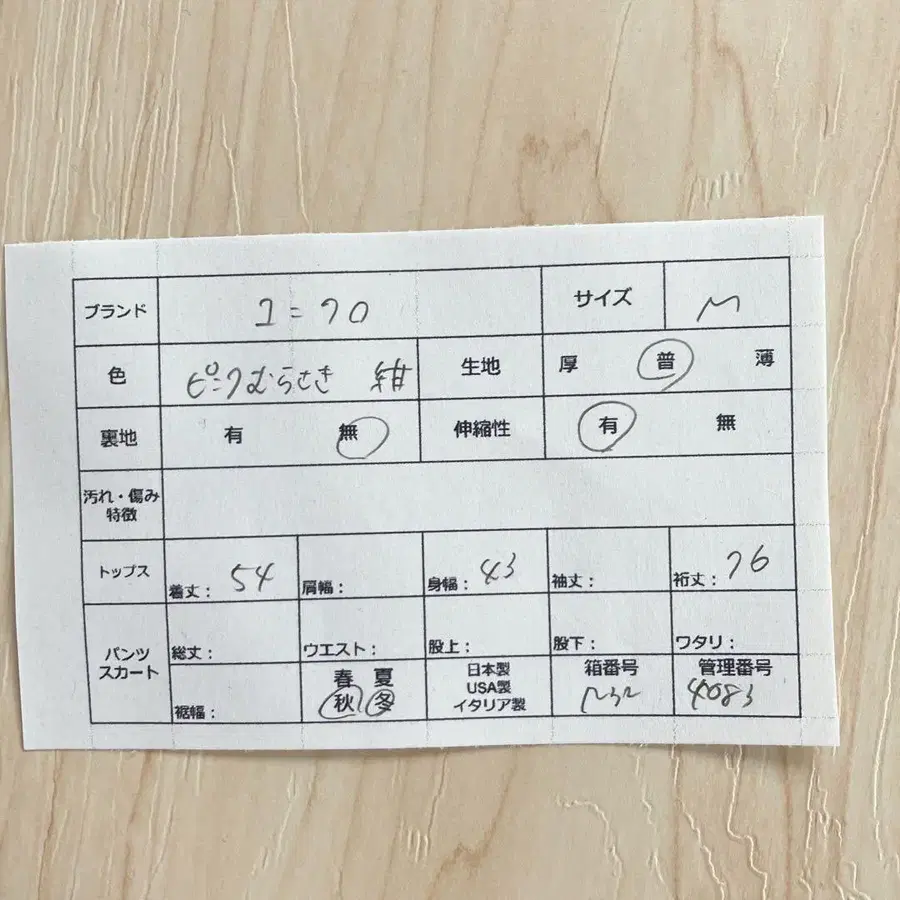 ブランド ユニクロ サイズ M
色 ピンクむらさき 紺 生地 厚 普 薄
裏地 有 無 伸縮性 有 無
汚れ・傷み
特徴
トップス 着丈: 54 肩幅: 身幅: 43 袖丈: 裄丈: 76
パンツ
スカート 総丈: ウエスト: 股上: 股下: ワタリ:
裾幅: 春 夏
秋 冬
日本製
USA製
イタリア製
箱番号
管理番号
4083